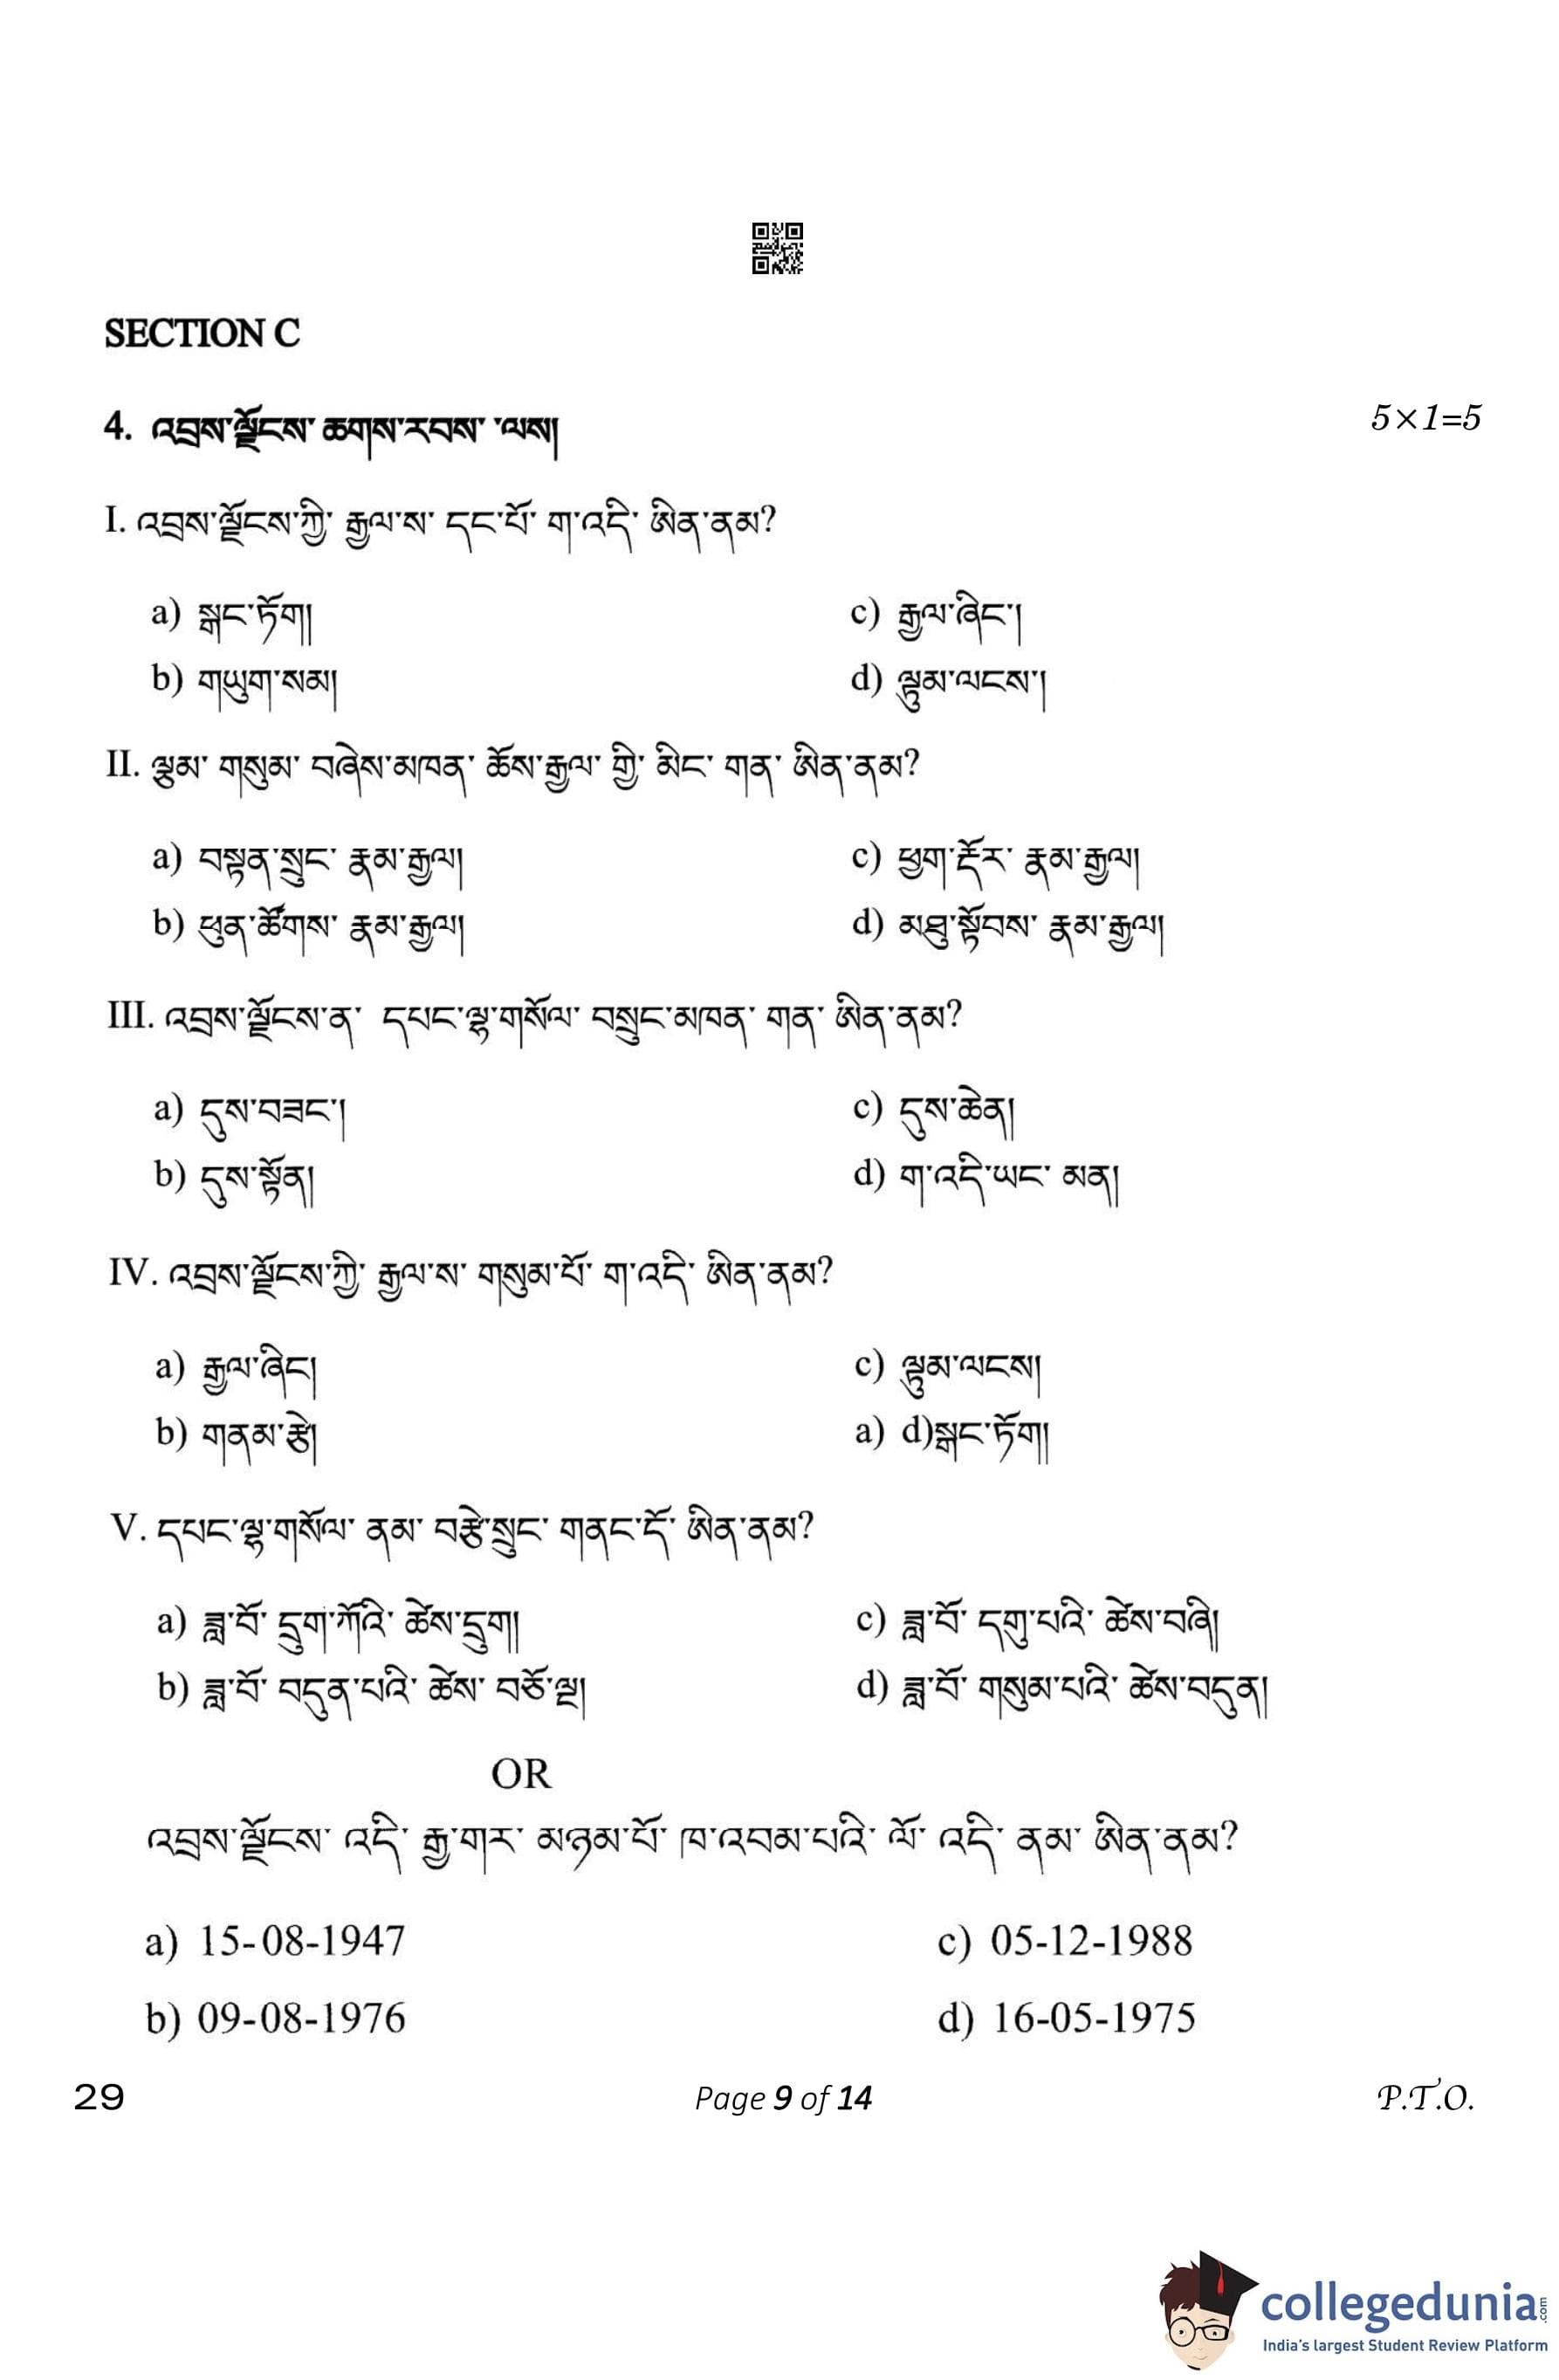 SECTION C
4. འབྲས་ལྗོངས་ ཆགས་རབས་ ་ལས།
5×1=5
I. འབྲས་ལྗོངས་ཀྱི་ རྒྱལ་ས་ དང་པོ་ ག་འདི་ ཨིན་ནམ?
a) སྒང་ཏོག།
c) རྒྱལ་ཞིང་།
b) གཡུག་སམ།
d) ལྟུམ་ལངས་།
II. ལྕམ་ གསུམ་ བཞེས་མཁན་ ཆོས་རྒྱལ་ གྱི་ མིང་ གན་ ཨིན་ནམ?
a) བསྟན་སྲུང་ རྣམ་རྒྱལ།
c) ཕྱག་རྡོར་ རྣམ་རྒྱལ།
b) ཕུན་ཚོགས་ རྣམ་རྒྱལ།
d) མཐུ་སྟོབས་ རྣམ་རྒྱལ།
III. འབྲས་ལྗོངས་ན་ དཔང་ལྷ་གསོལ་ བསྲུང་མཁན་ གན་ ཨིན་ནམ?
a) དུས་བཟང་།
c) དུས་ཆེན།
b) དུས་སྟོན།
d) ག་འདི་ཡང་ མན།
IV. འབྲས་ལྗོངས་ཀྱི་ རྒྱལ་ས་ གསུམ་པོ་ ག་འདི་ ཨིན་ནམ?
a) རྒྱལ་ཞིང།
c) ལྟུམ་ལངས།
b) གནམ་རྩེ།
a) d)སྒང་ཏོག།
V. དཔང་ལྷ་གསོལ་ ནམ་ བརྩེ་སྲུང་ གནང་དོ་ ཨིན་ནམ?
a) ཟླ་བོ་ དྲུག་ཀོའི་ ཚེས་དྲུག།
c) ཟླ་བོ་ དགུ་པའི་ ཚེས་བཞི།
b) ཟླ་བོ་ བདུན་པའི་ ཚེས་ བཅོ་ལྔ།
d) ཟླ་བོ་ གསུམ་པའི་ ཚེས་བདུན།
OR
འབྲས་ལྗོངས་ འདི་ རྒྱ་གར་ མཉམ་པོ་ ཁ་འབམ་པའི་ ལོ་ འདི་ ནམ་ ཨིན་ནམ?
a) 15-08-1947
c) 05-12-1988
b) 09-08-1976
d) 16-05-1975
29
Page 9 of 14
P.T.O.
collegedunia.com
India's largest Student Review Platform